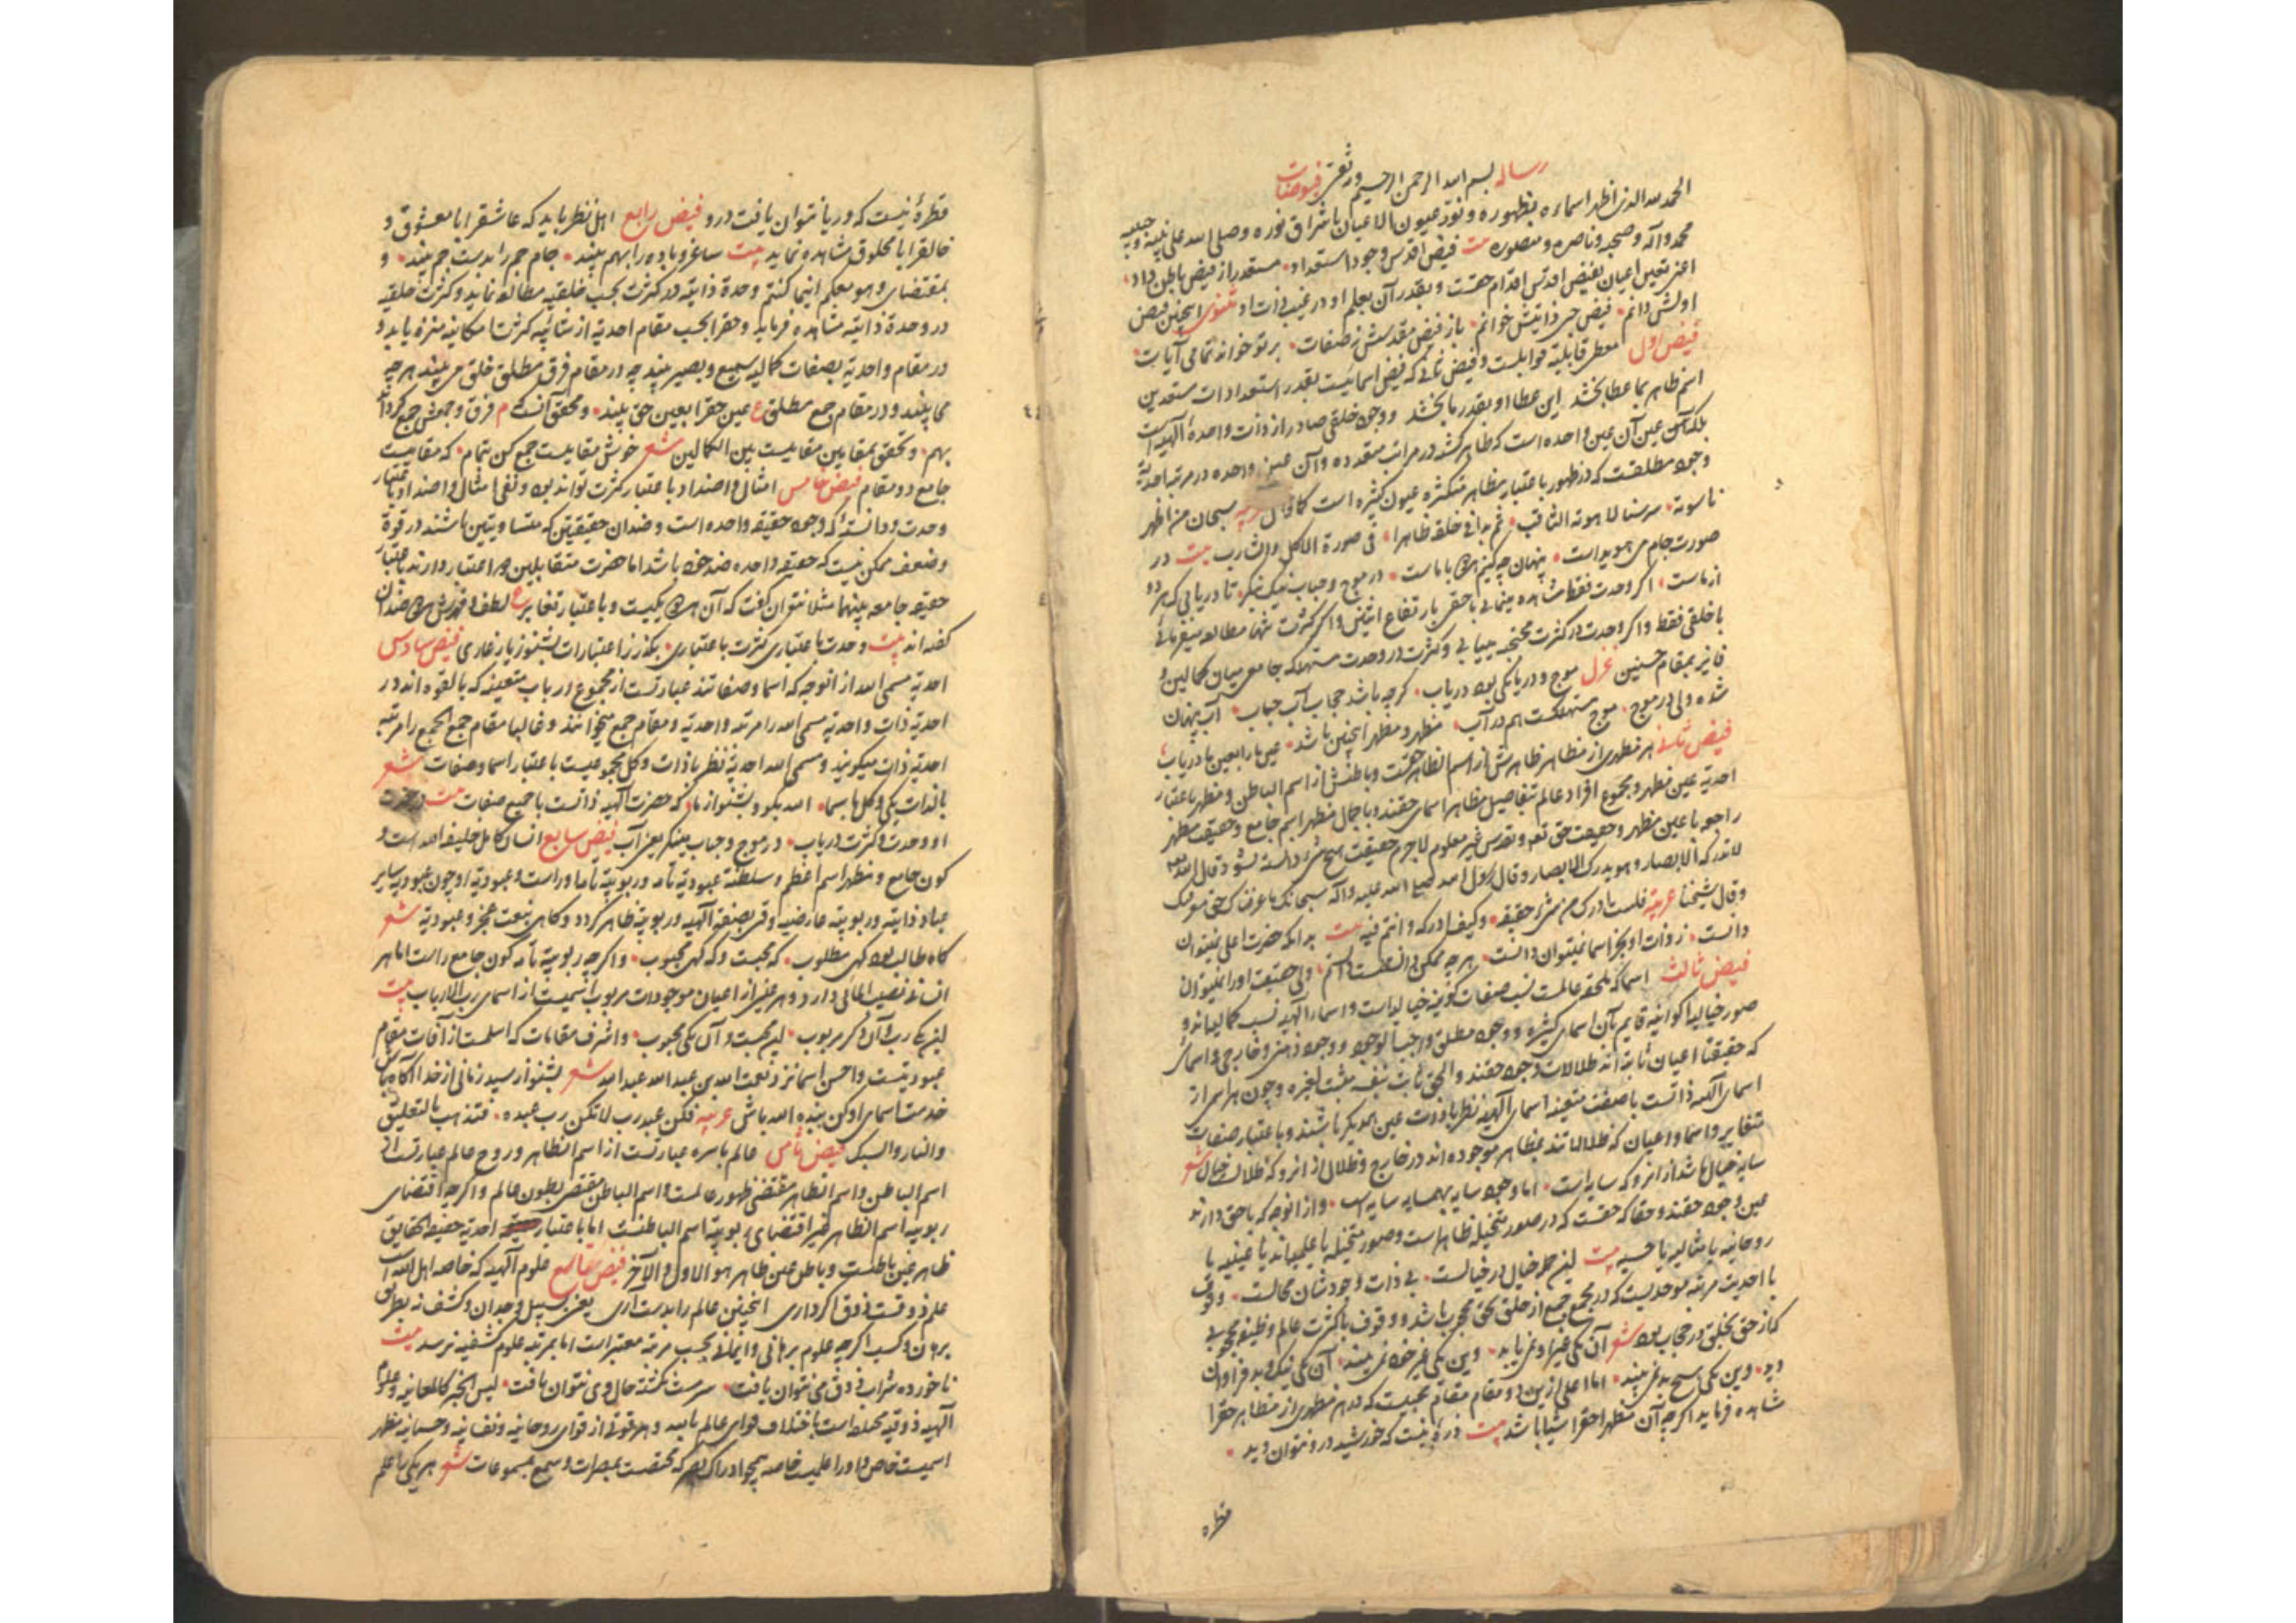 رساله بسم الله الرحمن الرحیم در فیوضات
الحمد لله الذی اظهر اسماءه بظهوره و نوّر عیون الاعیان باشراق نوره و صلی الله علی نبیه و حبیبه
محمد و آله و صحبه و ناصره و منصوره بیت فیض اقدس وجود استعداد • مستعد را ز فیض باطن داد •
اعنی تعین اعیان بفیض اقدس اقدام حقست و بقدر آن بعلم او در غیب ذات او مثنوی اینچنین فیض
اولش دانم • فیض حی ذاتیش خوانم • باز فیض مقدسش ز صفات • بر تو خواند تمامی آیات •
فیض اول معطی قابلیة قوابلست و فیض ثانی که فیض اسمائیست بقدر استعدادات مستعدین
اسم ظاهر بما عطا بخشد این عطا او بقدر ما بخشد و وجود خلقی صادر از ذات واحدهٔ الهیه است
بلکه آن عین آن عین واحده است که ظاهر گشته در مراتب متعدده و آن عین واحده در مرتبهٔ احدیة
وجود مطلقست که در ظهور باعتبار مظاهر متکثره عیون کثیره است کما قال عربیه سبحان من اظهر
ناسوته • سر سنا لاهوته الثاقب • ثم بدا فی خلقه ظاهرا • فی صورة الآکل والشارب بیت در
صورت جام می هویداست • پنهان چه کنیم او با ماست • در موج و حباب نیک بنگر • تا دریابی که هر دو
از ماست • اگر وحدت فقط مشاهده مینمائی با حقی بارتفاع اثنین و اگر کثرت تنها مطالعه میفرمائی
با خلقی فقط و اگر وحدت در کثرت محتجبه میابی و کثرت در وحدت مستهلکه جامعی میان کمالین و
فایز بمقام حسنین غزل موج و دریا یکی بود دریاب • گرچه باشد حجاب آب حباب • آب پنهان
شده ولی در موج • موج مستهلکست هم در آب • مظهر و مظهر اینچنین باشد • عین ما را بعین ما دریاب •
فیض ثانی هر مظهری از مظاهر ظاهرش از اسم الظاهر حقست و باطنش از اسم الباطن و مظهر باعتبار
احدیة عین مظهر و مجموع افراد عالم تفاصیل مظاهر اسمای حقند و باجمال مظهر اسم جامع و حقیقت مظهر
راجعه با عین مظهر و حقیقت حق تعالی و تقدس غیر معلوم لاجرم حقیقت هیچ شیء دانسته نشود قال الله تعالی
لا تدرکه الابصار و هو یدرک الابصار و قال رسول الله صلی الله علیه و آله سبحانک ما عرفناک حق معرفتک
و قال شیخنا عربیة فلست ادرک من شیء حقیقه • و کیف ادرکه و انتم فیه بیت بدانکه حضرت اعلی نمیتوان
دانست • ز ذات او بجز اسما نمیتوان دانست • هر چه ممکن دانستست دانم • ولی حقیقت او را نمیتوان
فیض ثالث اسما که ملحقه عالمست نسب صفات کونیه خیالیه است و اسماء الهیه نسب کمالیه اند و
صور خیالیه اکوانیه قایم بآن اسمای کثیره و وجود مطلق واجب الوجود و وجود ذهنی و خارجی و اسمای
که حقیقتا اعیان ثابته اند ظلالات وجود حقند و الحق ثابت بنفسه مثبت لغیره و چون هر اسمی از
اسمای الهیه ذاتست باصفت متعینه اسمای الهیه نظر با ذات عین همدیگر باشند و باعتبار صفات
متغایر و اسما و اعیان که ظلالاتند بمظاهر موجوده اند در خارج و ظلال از انرو که ظلالست خیال شعر
سایه خیال باشد از انرو که سایه است • اما وجود سایه بهمسایه سایه است • و از انوجه که با حق دارند
عین وجود حقند و حقا که حقست که در صور متخیله ظاهر است و صور متخیله یا علمیه اند یا عینیه یا
روحانیه یا مثالیه یا حسیه بیت این جمله خیال در خیالست • بی ذات وجودشان محالست • وقوف
با احدیت مرتبهٔ موحدیست که در مجمع جمیع از خلق بحق محجوب باشد و وقوف با کثرت عالم وظیفهٔ محجوبی
که از حق بخلق در حجاب بود شعر آن یکی غیر او نمی یابد • وین یکی غیر خود نمی بیند • آن یکی نیک و بد فراوان
دید • وین یکی هیچ بد نمی بیند • اما اعلی ازین دو مقام مقام محبیست که در هر مظهری از مظاهر حق را
مشاهده فرماید اگر چه آن مظهر احقر اشیا باشد بیت ذرهٔ نیست که خورشید درو نتوان دید •
قطرهٔ
قطرهٔ نیست که دریا نتوان یافت درو فیض رابع اهل نظر باید که عاشق را با معشوق و
خالق را با مخلوق مشاهده نماید بیت ساغر و باده را بهم بیند • جام جم را بدست جم بیند • و
بمقتضای و هو معکم اینما کنتم وحدة ذاتیة در کثرت بحسب خلقیه مطالعه نماید و کثرت خلقیه
در وحدة ذاتیه مشاهده فرماید و حق را بحسب مقام احدیة از شائبهٔ کثرت امکانیه منزه یابد و
در مقام واحدیة بصفات کمالیه سمیع و بصیر بیند چه در مقام فرق مطلق خلق می بیند هر چه
می بیند و در مقام جمع مطلق ع عین حق را بعین حق بیند • و محقق آنست که م فرق و جمعش جمع گردد آن
بهم • و تحقق بمقامین مقامیست بین الکمالین شعر خوش مقامیست جمع کن بتمام • که مقامیست
جامع دو مقام فیض خامس امثال و اضداد باعتبار کثرت تواند بود و نفی امثال و اضداد باعتبار
وحدت و دانستهٔ که وجود حقیقه واحده است و ضدان حقیقتین که متساویتین باشند در قوة
و ضعف ممکن نیست که حقیقه واحده ضد خود باشد اما حضرت متقابلین را اعتبار دارند باعتبار
حقیقه جامعه بینهما مثلا نتوان گفت که آن هر دو یکیست و باعتبار تغایر ع لطف و قهرش هر دو ضدان
گفته اند بیت وحدت باعتباری کثرت باعتباری • بگذر ز اعتبارات بشنو ز یار غاری فیض سادس
احدیة مسمی الله از انوجه که اسما و صفاتند عبارتست از مجموع ارباب متعینه که بالقوه اند در
احدیة ذات و واحدیة مسمی الله را مرتبه واحدیة و مقام جمع میخوانند و غالبا مقام جمع الجمع را مرتبه
احدیة ذات میگویند و مسمی الله احدیة نظر با ذات و کل مجموعیست باعتبار اسما و صفات شعر
بالذات یکی و کل باسما • الله بگو و بشنو از ما • که حضرت الهیه ذاتست با جمیع صفات بیت
او وحدت و کثرت دریاب • در موج و حباب مینگر عین آب فیض سابع انسان کامل خلیفه الله است و
کون جامع و مظهر اسم اعظم و سلطنة عبودیة تامه و ربوبیة تامه او راست و عبودیة او چون عبودیه سایر
عباد ذاتیه و ربوبیته عارضیه وقتی بصفة الهیه و ربوبیه ظاهر گردد و گاهی بنعت عجز و عبودیة شعر
گاه طالب بود گهی مطلوب • گه محبت و گه گهی محبوب • و اگر چه ربوبیة تامه کون جامع راست اما هر
انسانی نصیب المالی دارد و هر عینی از اعیان موجودات مربوب اسمیست از اسمای رب الارباب بیت
این یکی رب و آن دگر مربوب • این محبت و آن یکی محبوب • و اشرف مقامات که اسلمست از آفات مقام
عبودیتست و احسن اسما نزد نعمت الله بن عبد الله عبد الله شعر بشنو از سید زمانی از خدا آگاه باش
خدمت اسمای او کن بنده الله باش عربیه فکن عبد رب لا تکن رب عبده • فتذهب بالتعلیق
والنار والسبک فیض ثامن عالم باسره عبارتست از اسم الظاهر و روح عالم عبارتست از
اسم الباطن و اسم الظاهر مقتضی ظهور عالمست و اسم الباطن مقتضی بطون عالم و اگر چه اقتضای
ربوبیه اسم الظاهر غیر اقتضای ربوبیة اسم الباطنست اما باعتبار احدیة حقیقة الحقایق
ظاهر عین باطنست و باطن عین ظاهر هو الاول و الآخر فیض تاسع علوم الهیه که خاصه اهل الله است
علم ذوقست ذوق اگر داری اینچنین عالم را بدست آری یعنی بسبیل وجدان و کشف نه بطریق
برهان و کسب اگر چه علوم برهانی و ایمانی بحسب مرتبه معتبر است اما بمرتبه علوم کشفیه نرسد بیت
ناخورده شراب ذوق می نتوان یافت • سرمست نگشته حال وی نتوان یافت • لیس الخبر کالمعاینه و علوم
الهیه ذوقیه مختلط است باختلاف قوای عالم بالله و هر قوتی از قوای روحانیه و نفسانیه و جسمانیه مظهر
اسمیست خاص و او را علمیست خاصه همچو ادراک بصر که مختصست بمبصرات و سمع بمسموعات شعر هر یکی با علم